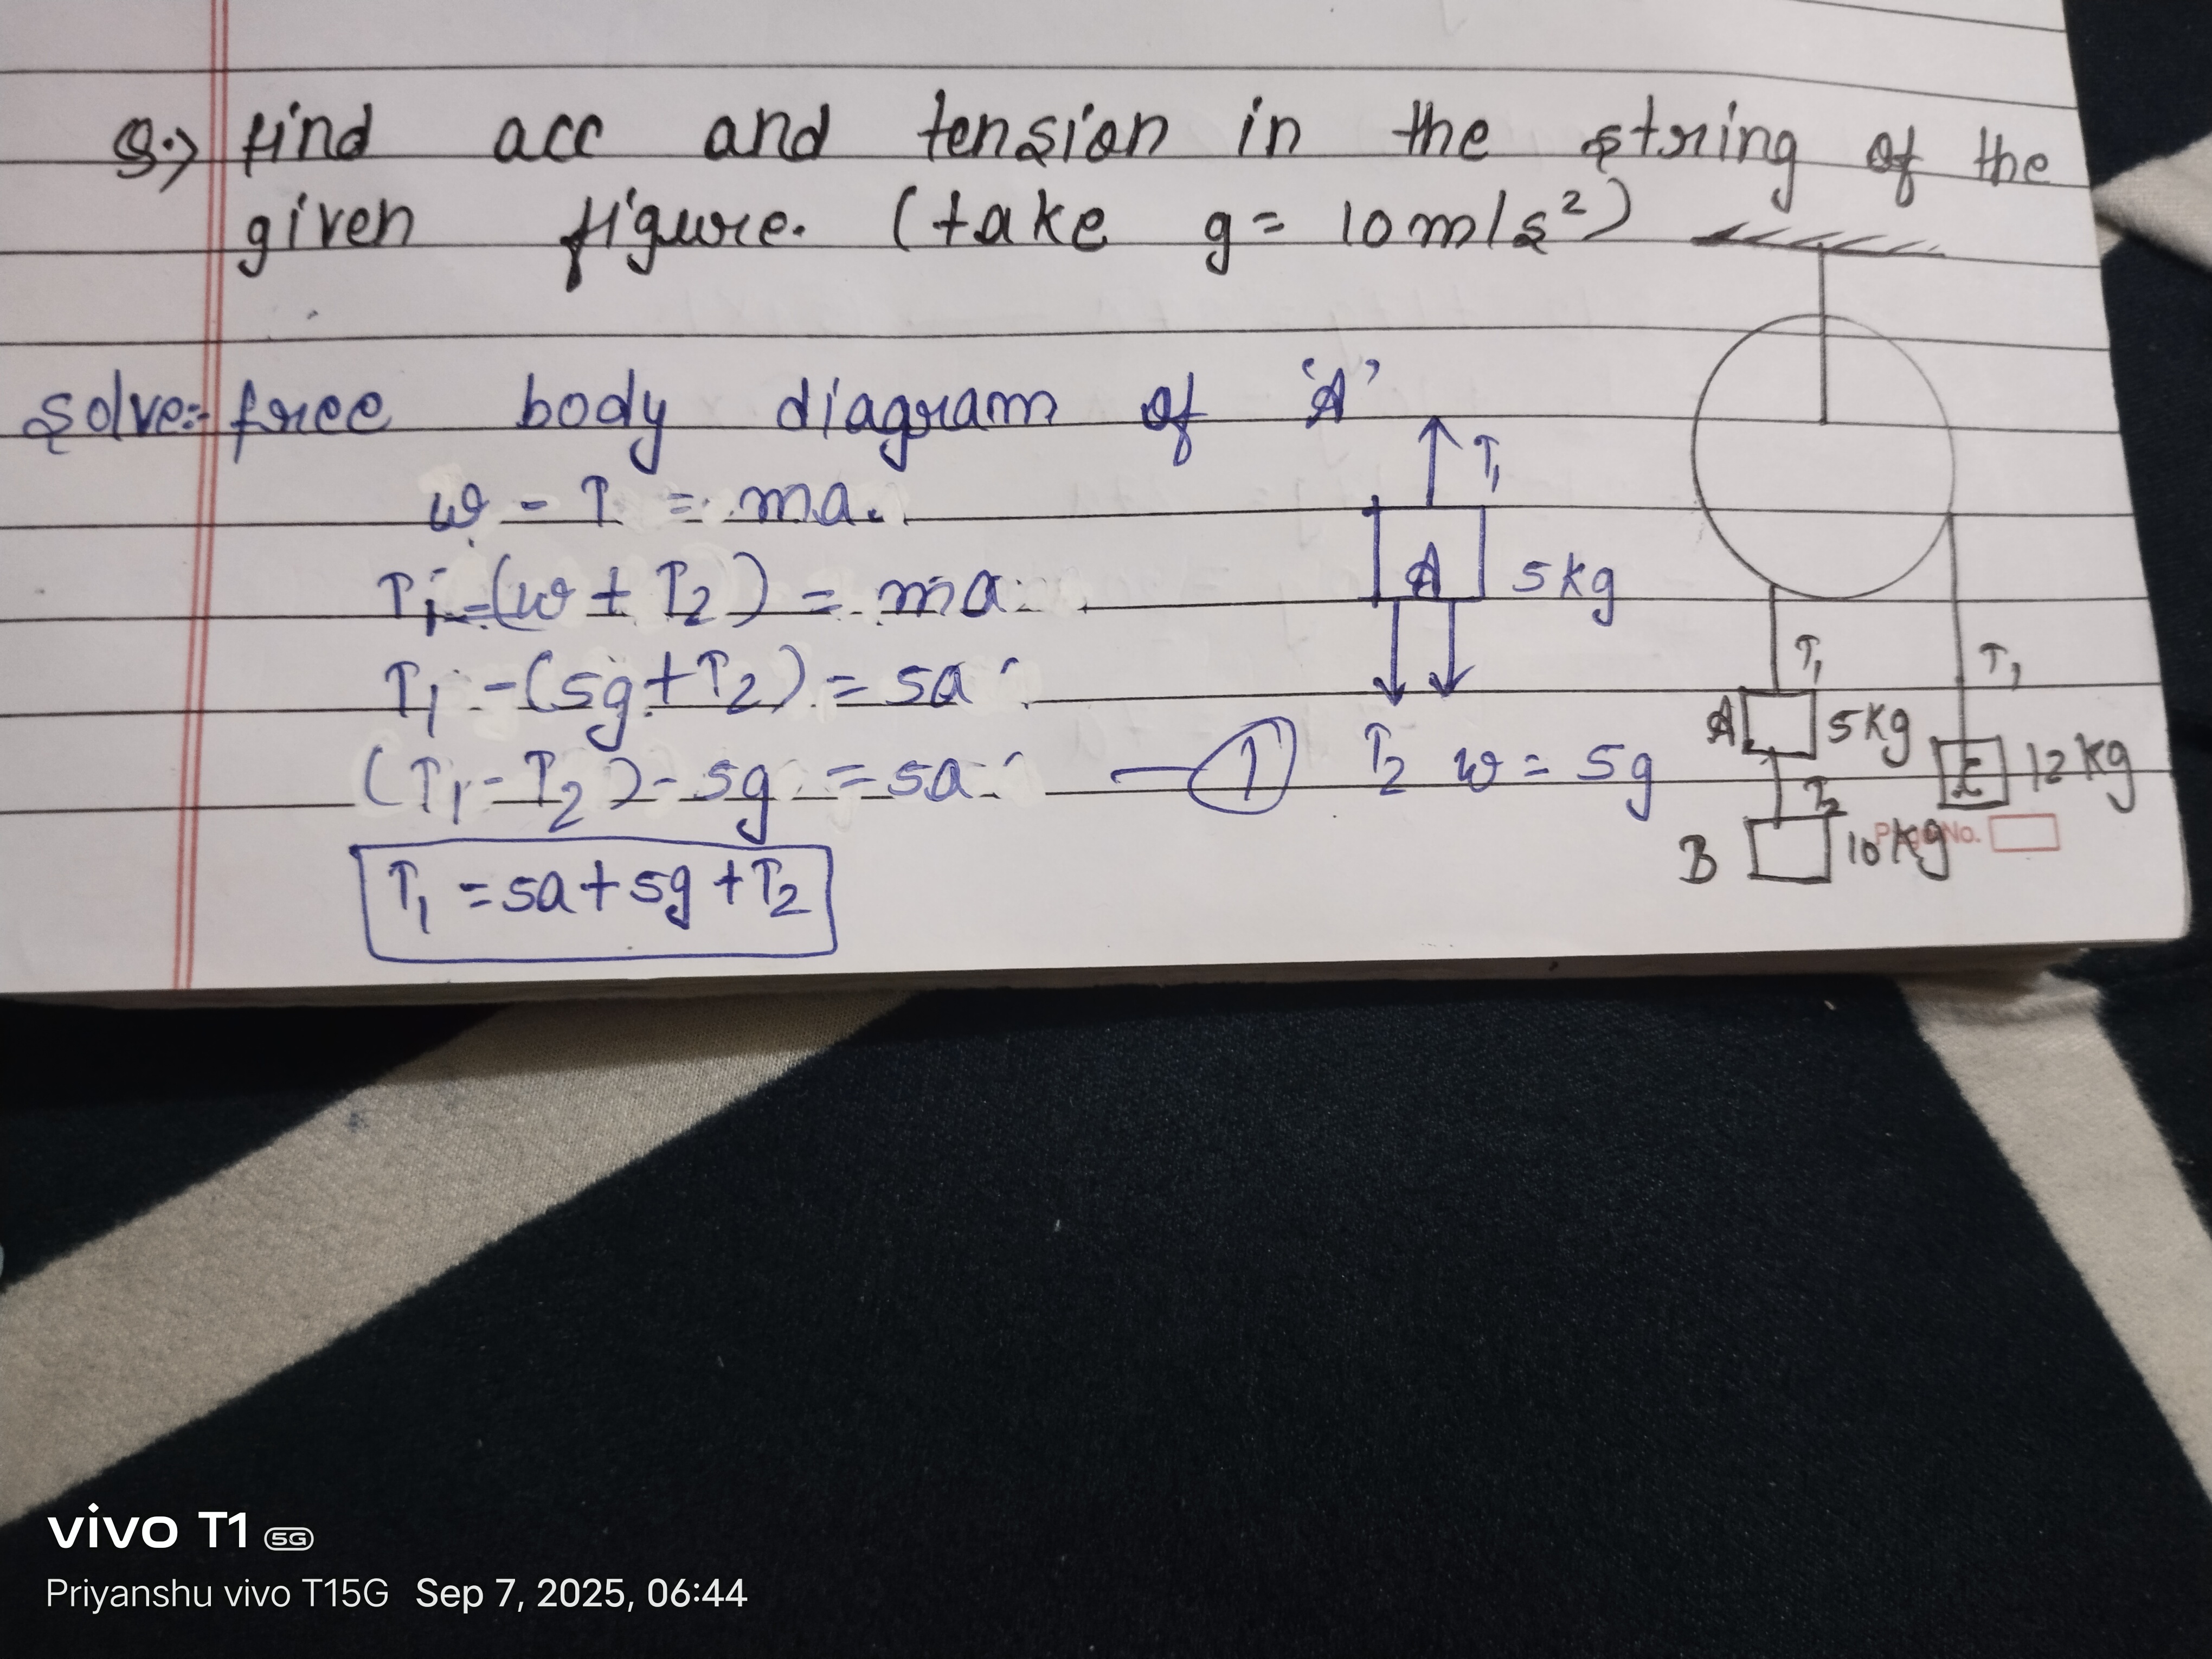 Q.) find acc and tension in the string of the
given figure. (take g= 10 m/s²)
solve:- free body diagram of 'A'
w - T = ma.
T₁-(w + T₂) = ma
T₁ -(5g+T₂) = 5a
(T₁-T₂)-5g = 5a —①
T₁ = 5a+5g+T₂
T₁
A 5kg
T₂ w = 5g
T₁ T₁
A 5kg
T₂
C 12 kg
B 10kg
Page No.
vivo T1 5G
Priyanshu vivo T15G Sep 7, 2025, 06:44